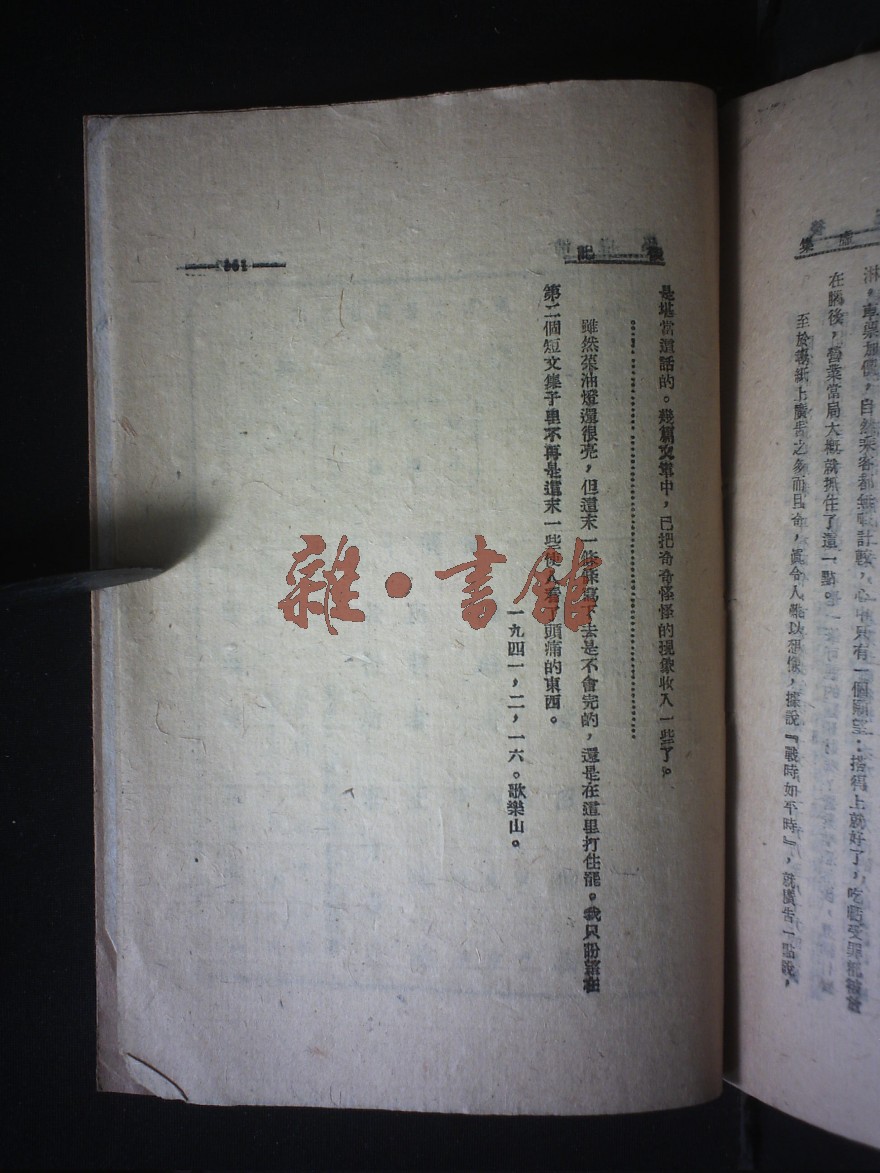 集
至於報紙上廣告之多而且奇，眞令人難以想像，據說『戰時如平時』，就廣告一點說，
在腦後，營業當局大概就抓住了這一點。
淋。車票加價，自然乘客都無暇計較，心中只有一個願望：搭得上就好了，吃虧受罪
後記
是堪當這話的。幾篇文章中，已把奇奇怪怪的現象收入一些了。
………………………………
雖然菜油燈還很亮，但這末一條條寫下去是不會完的，還是在這里打住罷。我只盼望在
第二個短文集子里不再是這末一些使人看了頭痛的東西。
一九四一，二，一六。歌樂山。
雜·書館